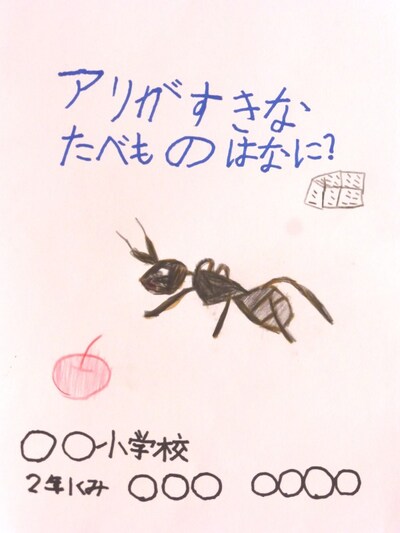 アリがすきな
たべものはなに?
〇〇小学校
2年1くみ 〇〇〇 〇〇〇〇